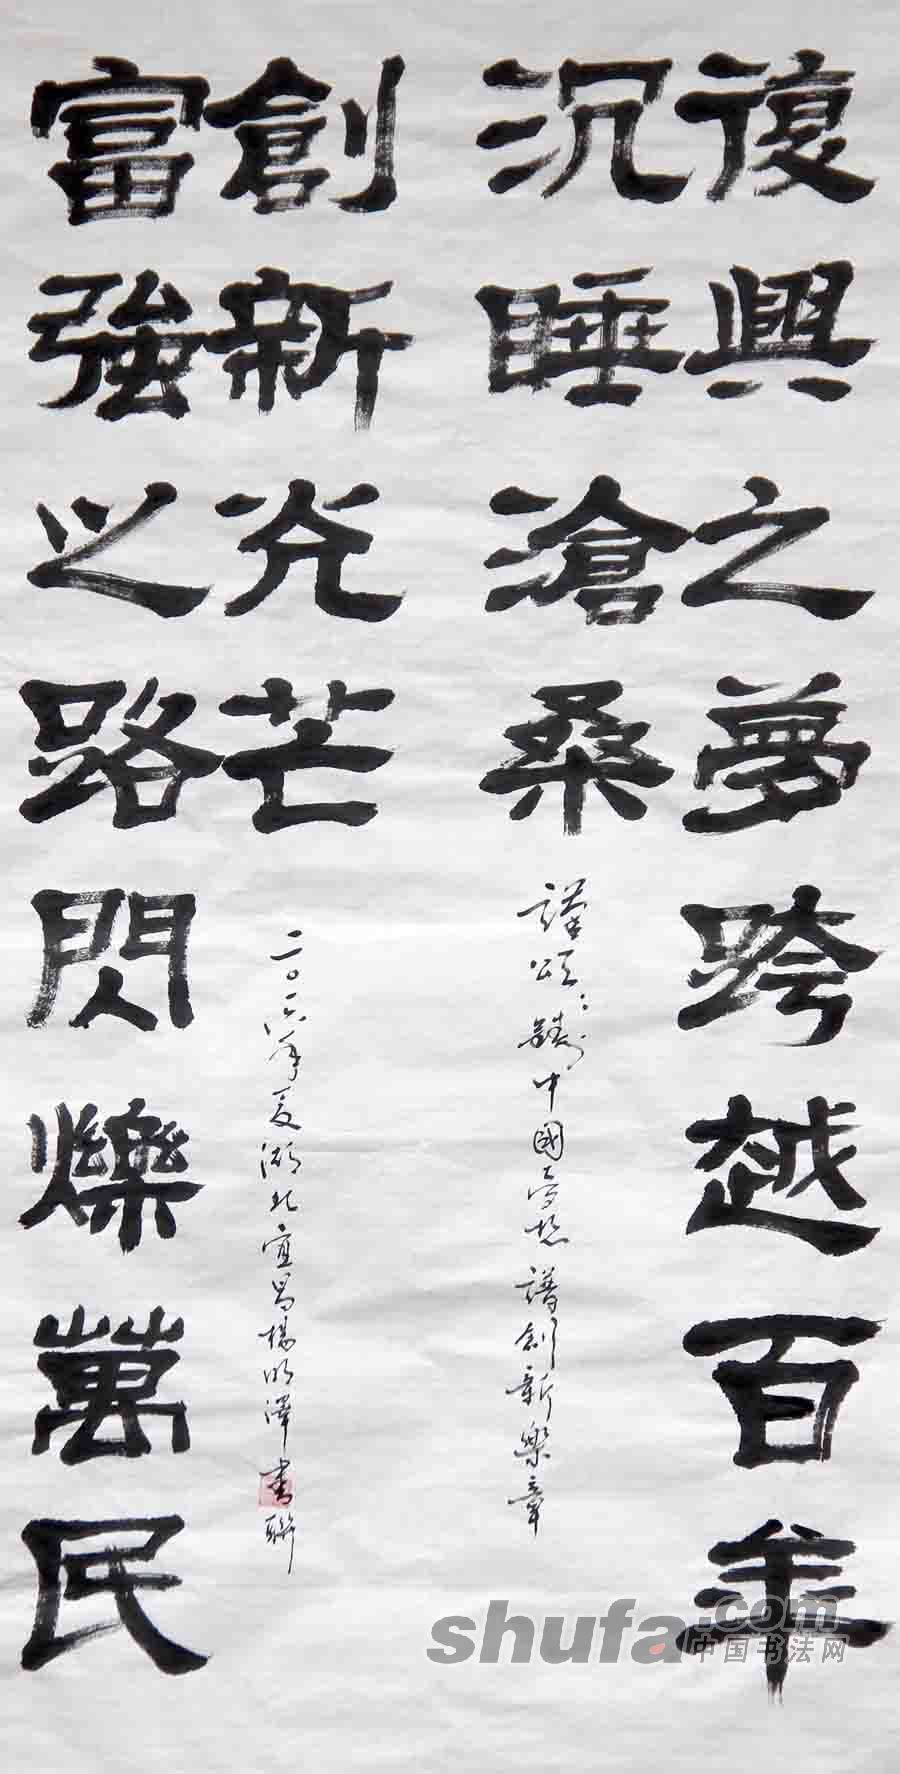 復興之夢跨越百年
沉睡滄桑
謹頌：鑄中國夢想 譜創新樂章
富強之路閃爍萬民
創新光芒
二〇一六年夏湖北宜昌楊明澤書聯
shufa.com
中国书法网